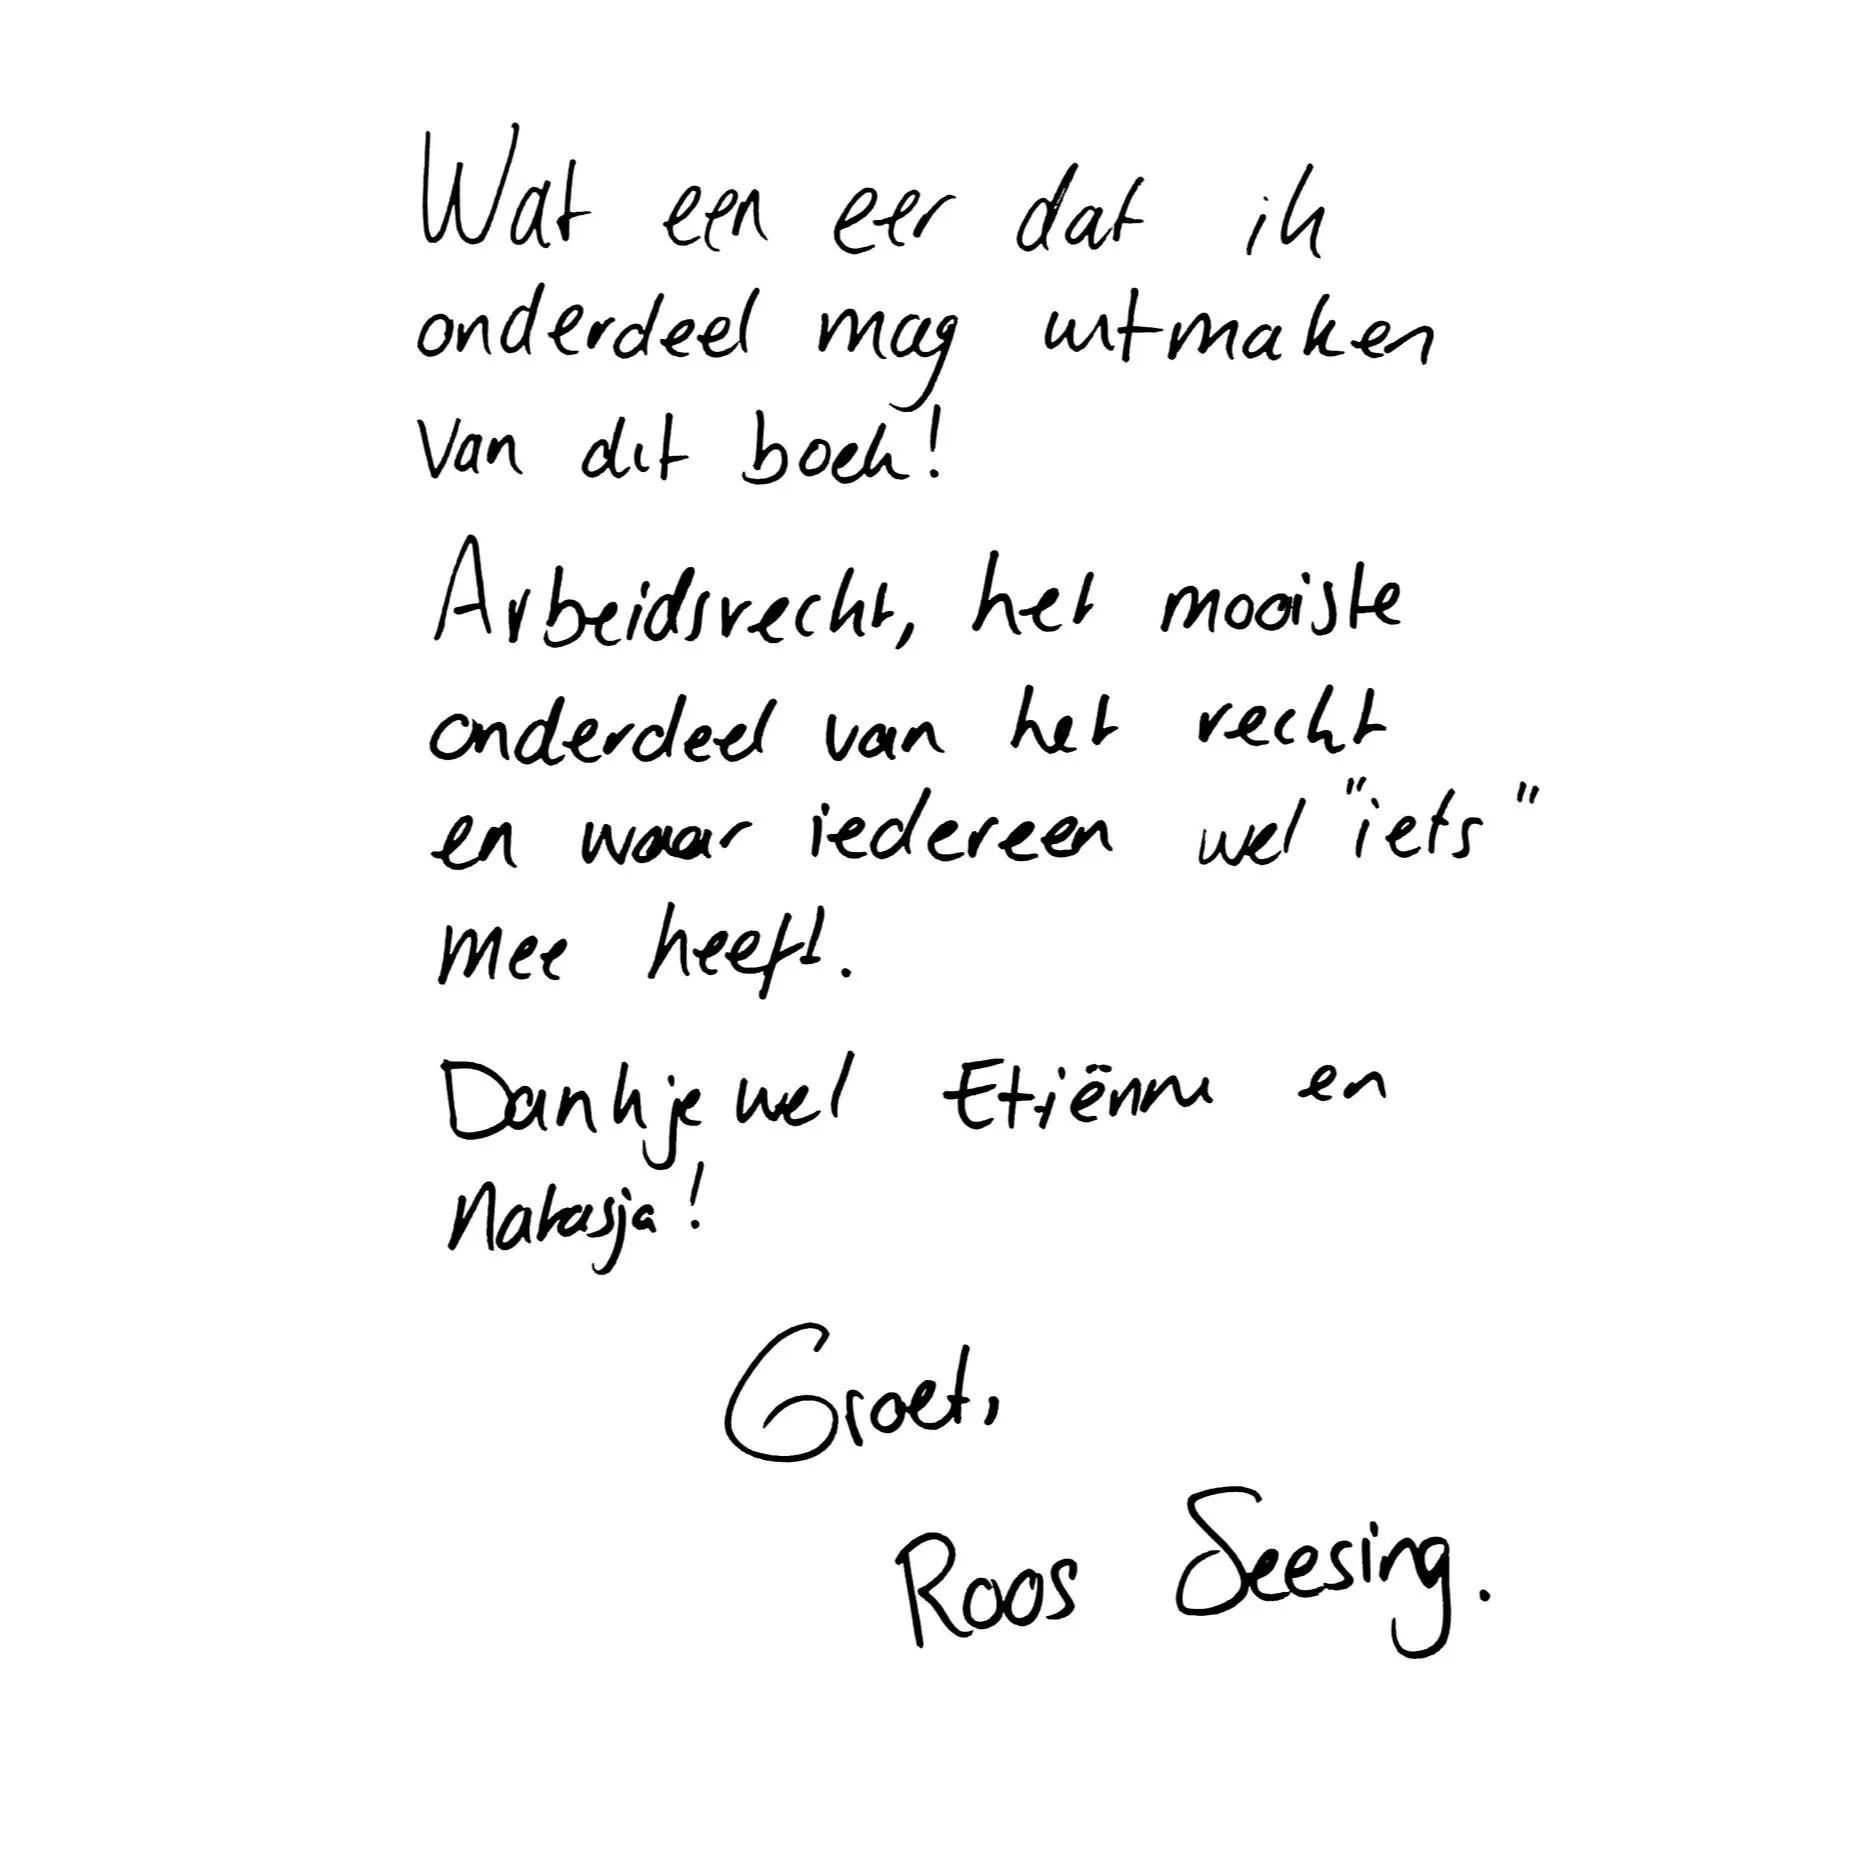 Wat een eer dat ik
onderdeel mag uitmaken
van dit boek!
Arbeidsrecht, het mooiste
onderdeel van het recht
en waar iedereen wel "iets"
mee heeft.
Dankjewel Etiënne en
Natasja!
Groet,
Roos Seesing.